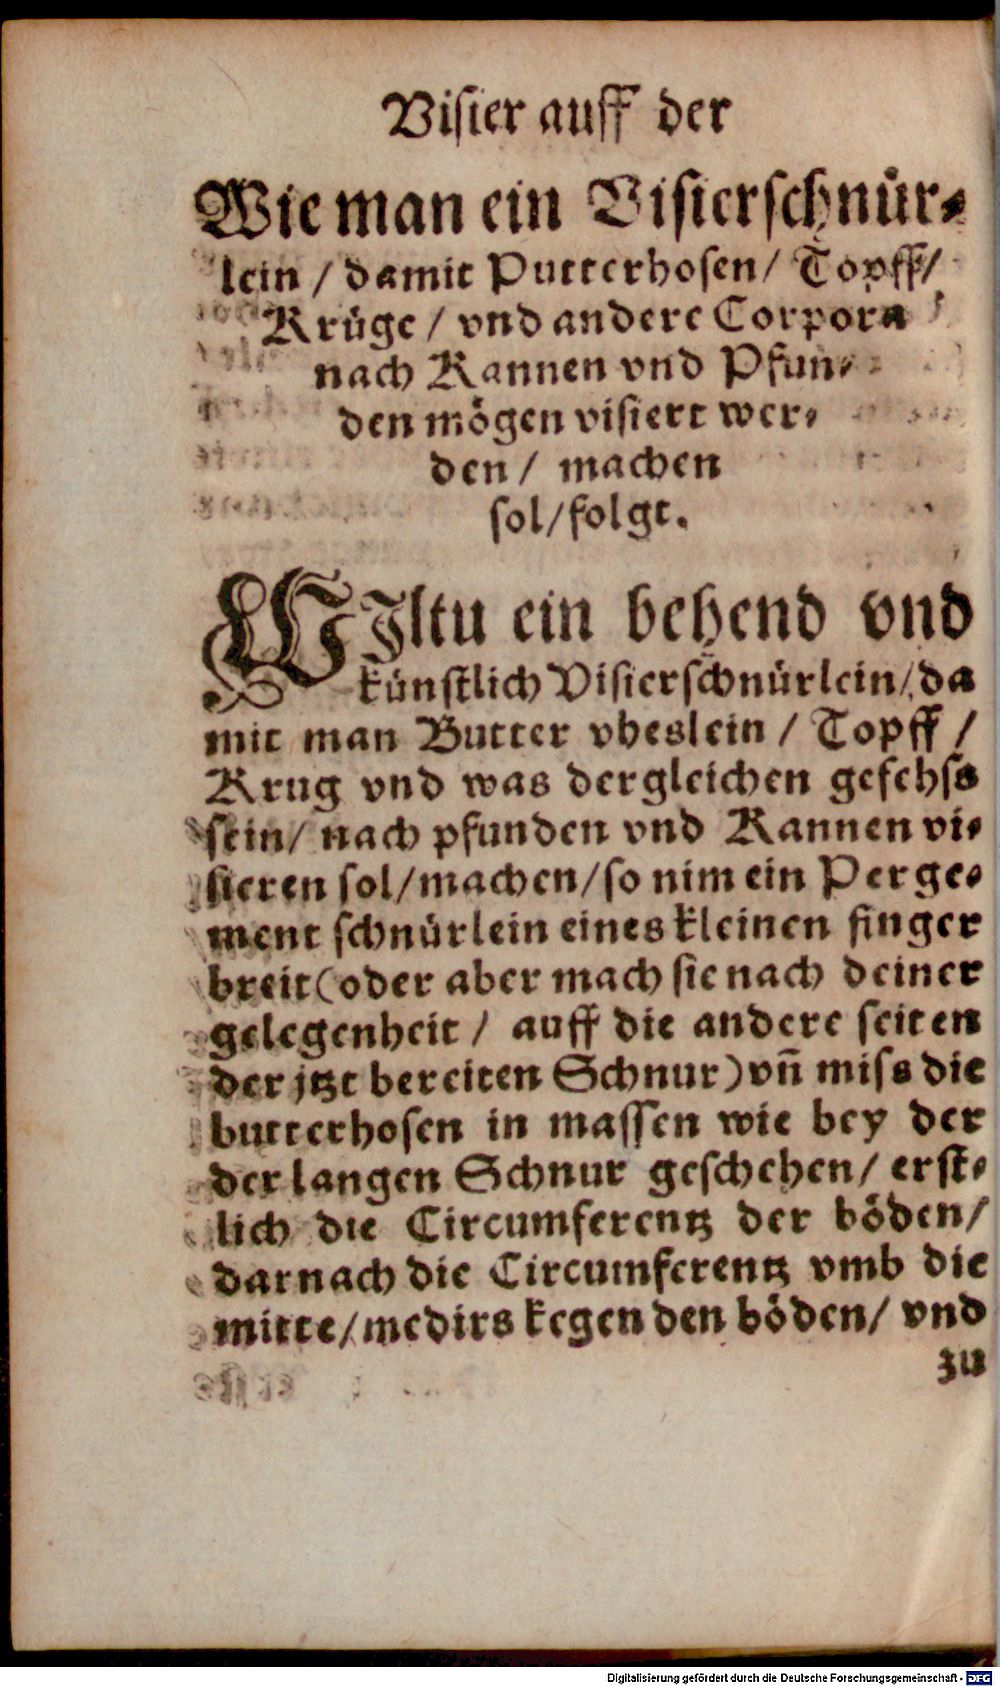 Visier auff der
Wie man ein Visierschnür⸗
lein / damit Putterhosen / Topff /
Krüge / vnd andere Corpora
nach Kannen vnd Pfun⸗
den mögen visiert wer⸗
den / machen
sol / folgt.
WIltu ein behend vnd
künstlich Visierschnürlein / da
mit man Butter vheslein / Topff /
Krug vnd was dergleichen gefehss
sein / nach pfunden vnd Kannen vi⸗
sieren sol / machen / so nim ein Perge⸗
ment schnürlein eines kleinen finger
breit (oder aber mach sie nach deiner
gelegenheit / auff die andere seiten
der jtzt bereiten Schnur) vn̄ miss die
butterhosen in massen wie bey der
der langen Schnur geschehen / erst⸗
lich die Circumferentz der böden /
darnach die Circumferentz vmb die
mitte / medirs kegen den böden / vnd
zu
Digitalisierung gefördert durch die Deutsche Forschungsgemeinschaft - DFG